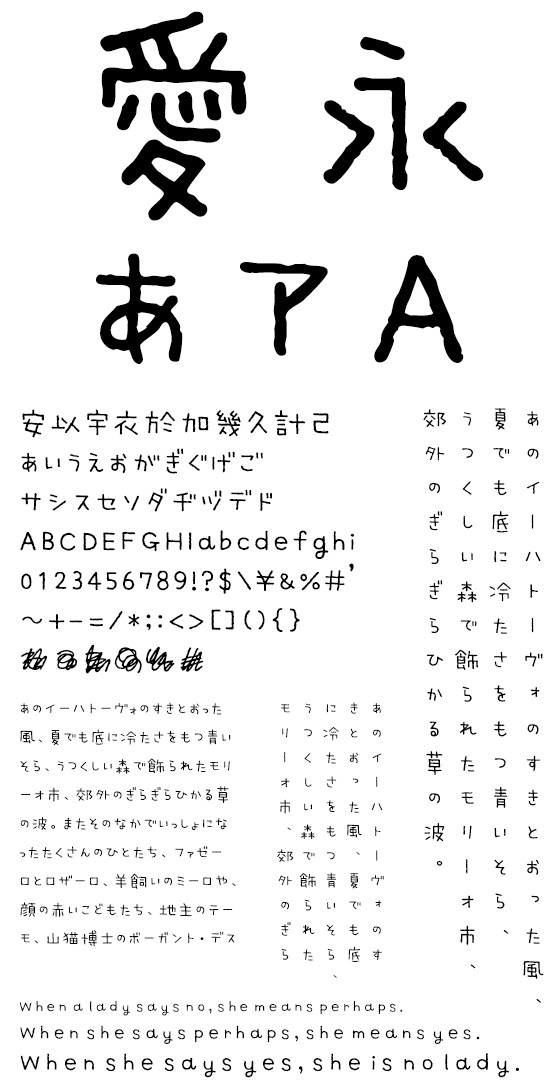 愛永
あアA
安以宇衣於加幾久計己
あいうえおがぎぐげご
サシスセソダヂヅデド
ABCDEFGHIabcdefghi
0123456789!?$\¥&%#’
～+-=/*;:<>[](){}
あのイーハトーヴォのすきとおった
風、夏でも底に冷たさをもつ青い
そら、うつくしい森で飾られたモリ
ーオ市、郊外のぎらぎらひかる草
の波。またそのなかでいっしょにな
ったたくさんのひとたち、ファゼー
ロとロザーロ、羊飼いのミーロや、
顔の赤いこどもたち、地主のテー
モ、山猫博士のボーガント・デス
あのイーハトーヴォのす
きとおった風、夏でも底
に冷たさをもつ青いそら、
うつくしい森で飾られた
モリーオ市、郊外のぎら
あのイーハトーヴォのすきとおった風、
夏でも底に冷たさをもつ青いそら、
うつくしい森で飾られたモリーオ市、
郊外のぎらぎらひかる草の波。
When a lady says no, she means perhaps.
When she says perhaps, she means yes.
When she says yes, she is no lady.